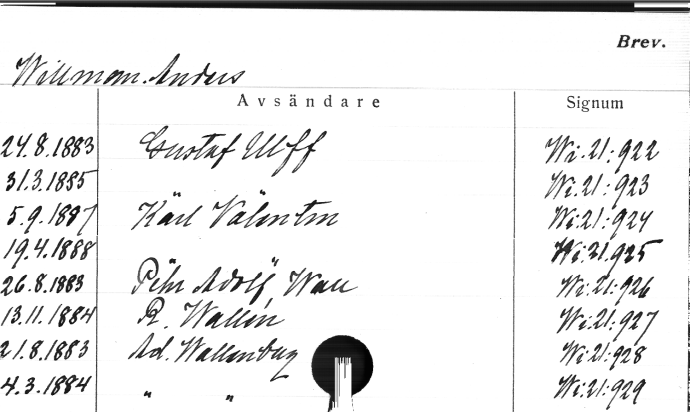 Brev.
Willman. Anders
Avsändare Signum
24.8.1883 Gustaf Ulff Wi.21:922
31.3.1885 Wi.21:923
5.9.1887 Karl Valentin Wi:21:924
19.4.1888 Wi:21.925
26.8.1883 Pehr Adolf Wall Wi.21:926
13.11.1884 R. Wallin Wi:21:927
21.8.1883 Ad. Wallenberg Wi:21:928
4.3.1884 " " Wi:21:929